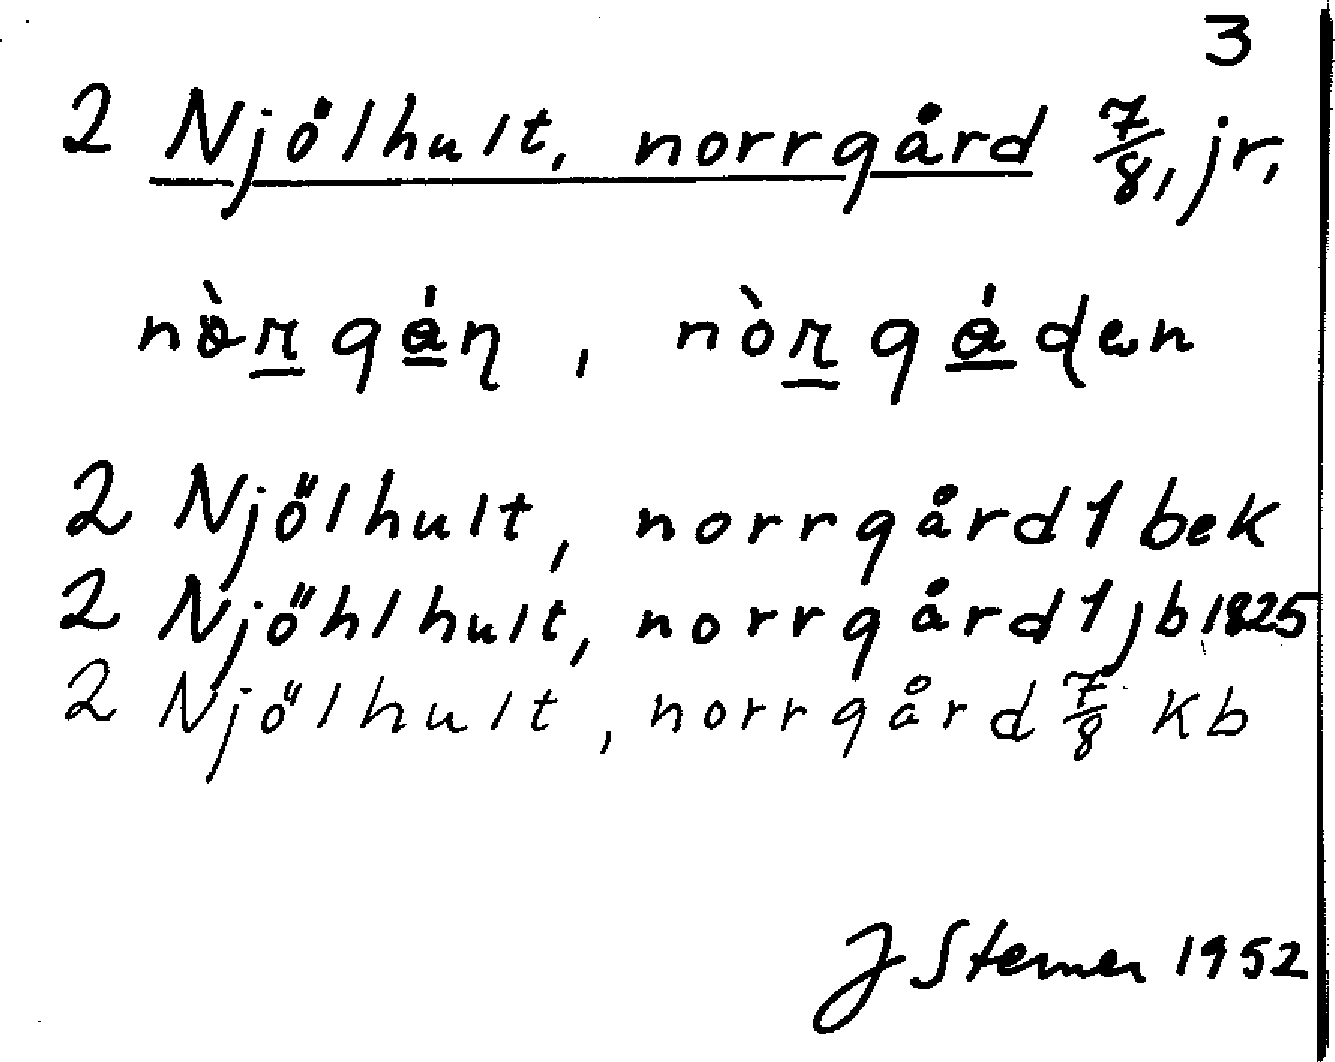 3
2 Njölhult, norrgård 7/8, jr,
nòrgán, nòrgáden
2 Njölhult, norrgård 1 bek
2 Njöhlhult, norrgård 1 jb 1825
2 Njölhult, norrgård 7/8 kb
J Sterner 1952